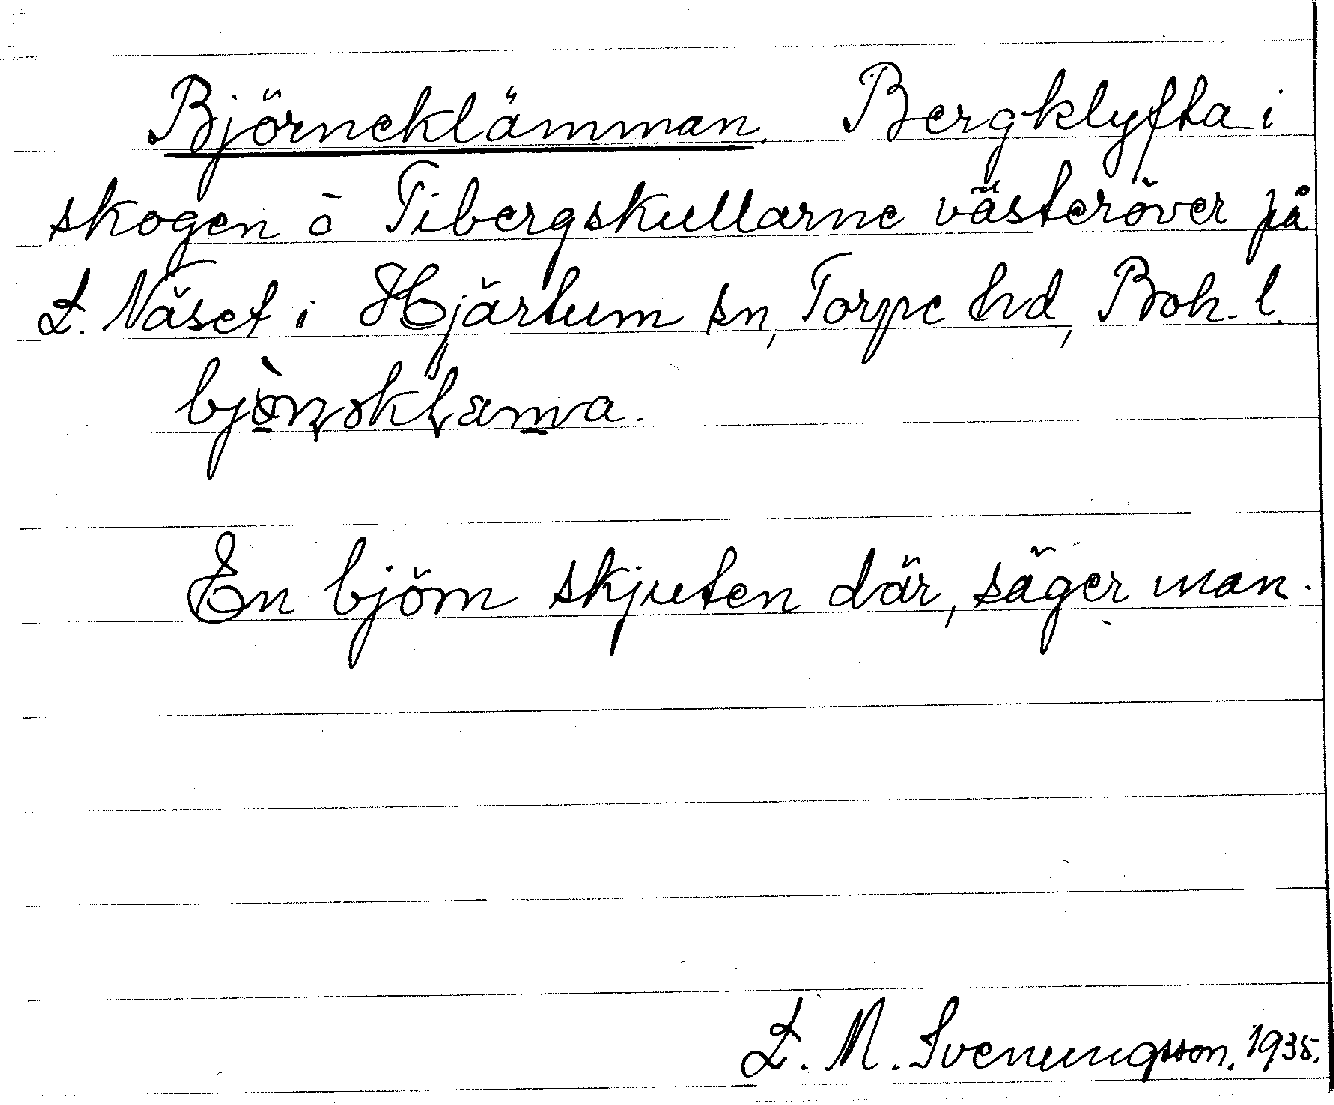 Björneklämman. Bergklyfta i
skogen å Tibergskullarne västeröver på
L. Näset i Hjärtum sn, Torpe hd, Boh. l.
En björn skjuten där, säger man.
L. M. Svenungsson. 1935.